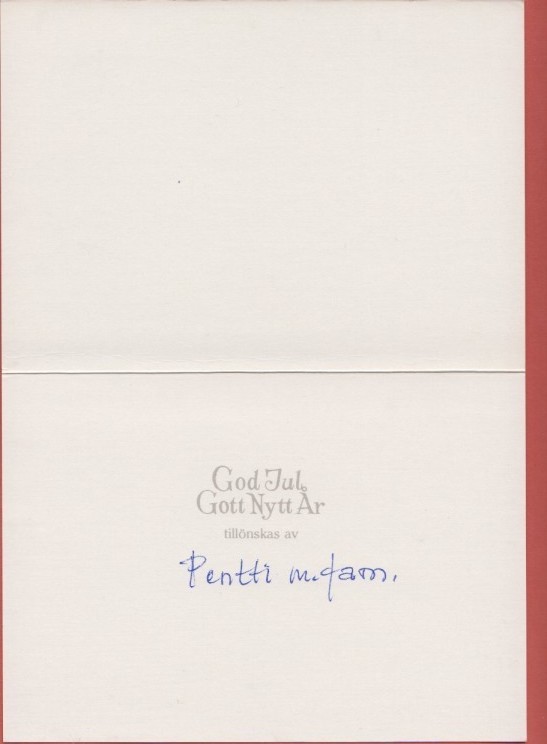 God Jul,
Gott Nytt År
tillönskas av
Pentti m.fam.